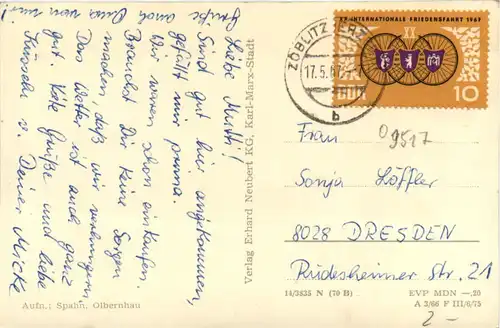 Liebe Mutti!
Sind gut hier angekommen,
gefällt mir prima.
Wir waren schon einkaufen.
Brauchst Dir keine Sorgen
machen, daß wir verhungern.
Das Wetter ist auch ganz
gut. Viele Grüße und liebe
Küsschen v. Deiner Micke
Grüße auch von mir!
Verlag Erhard Neubert KG, Karl-Marx-Stadt
Aufn.: Spahn, Olbernhau
XX. INTERNATIONALE FRIEDENSFAHRT 1967
DDR 10
ZÖBLITZ
17.5.67
b
9517
Frau
Sonja Löffler
8028 DRESDEN
Rüdesheimer Str. 21
14/3835 N (70 B)
EVP MDN -,20
A 2/66 F III/6/75
2-